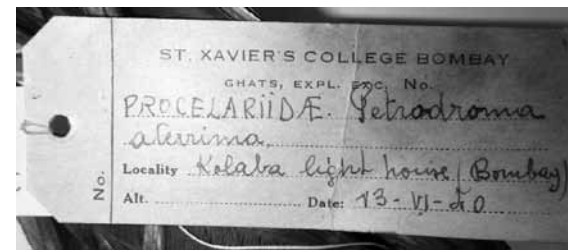 ST. XAVIER'S COLLEGE BOMBAY
GHATS, EXPL. EXC. No.
PROCELARIIDÆ. Petrodroma
aterrima.
Locality Kolaba light house (Bombay)
No.
Alt. Date: 13-VI-40